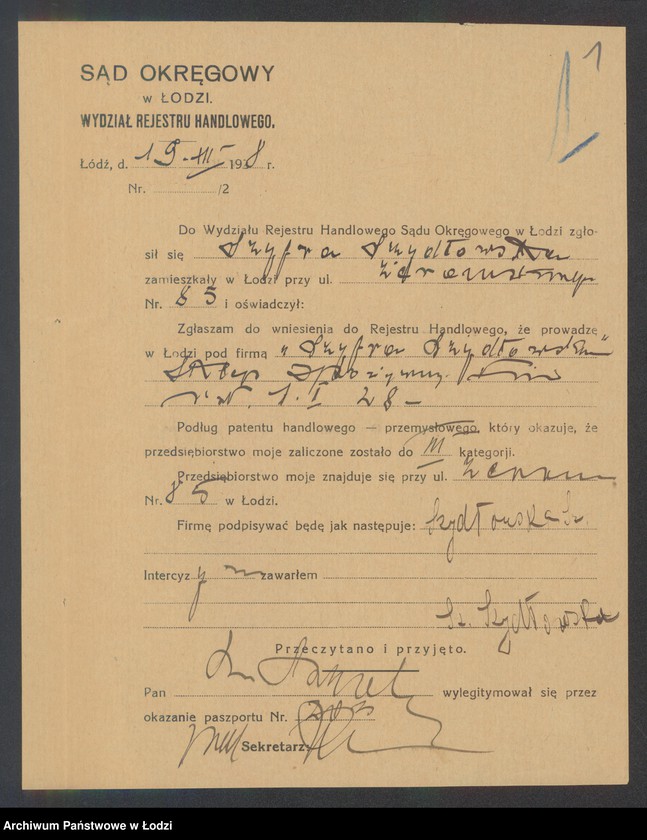 1
SĄD OKRĘGOWY
w ŁODZI.
WYDZIAŁ REJESTRU HANDLOWEGO.
Łódź, d. 19-XII 1938 r.
Nr. /2
Do Wydziału Rejestru Handlowego Sądu Okręgowego w Łodzi zgło-
sił się Szyfra Szydłowska
zamieszkały w Łodzi przy ul.
Nr. 85 i oświadczył:
Zgłaszam do wniesienia do Rejestru Handlowego, że prowadzę
w Łodzi pod firmą „Szyfra Szydłowska"
Sklep
1.I 28 -
Podług patentu handlowego — przemysłowego, który okazuje, że
przedsiębiorstwo moje zaliczone zostało do III kategorji.
Przedsiębiorstwo moje znajduje się przy ul.
Nr. 85 w Łodzi.
Firmę podpisywać będę jak następuje: Szydłowska Sz.
Intercyzy nie zawarłem
Sz. Szydłowska
Przeczytano i przyjęto.
Pan wylegitymował się przez
okazanie paszportu Nr.
Sekretarz:
Archiwum Państwowe w Łodzi